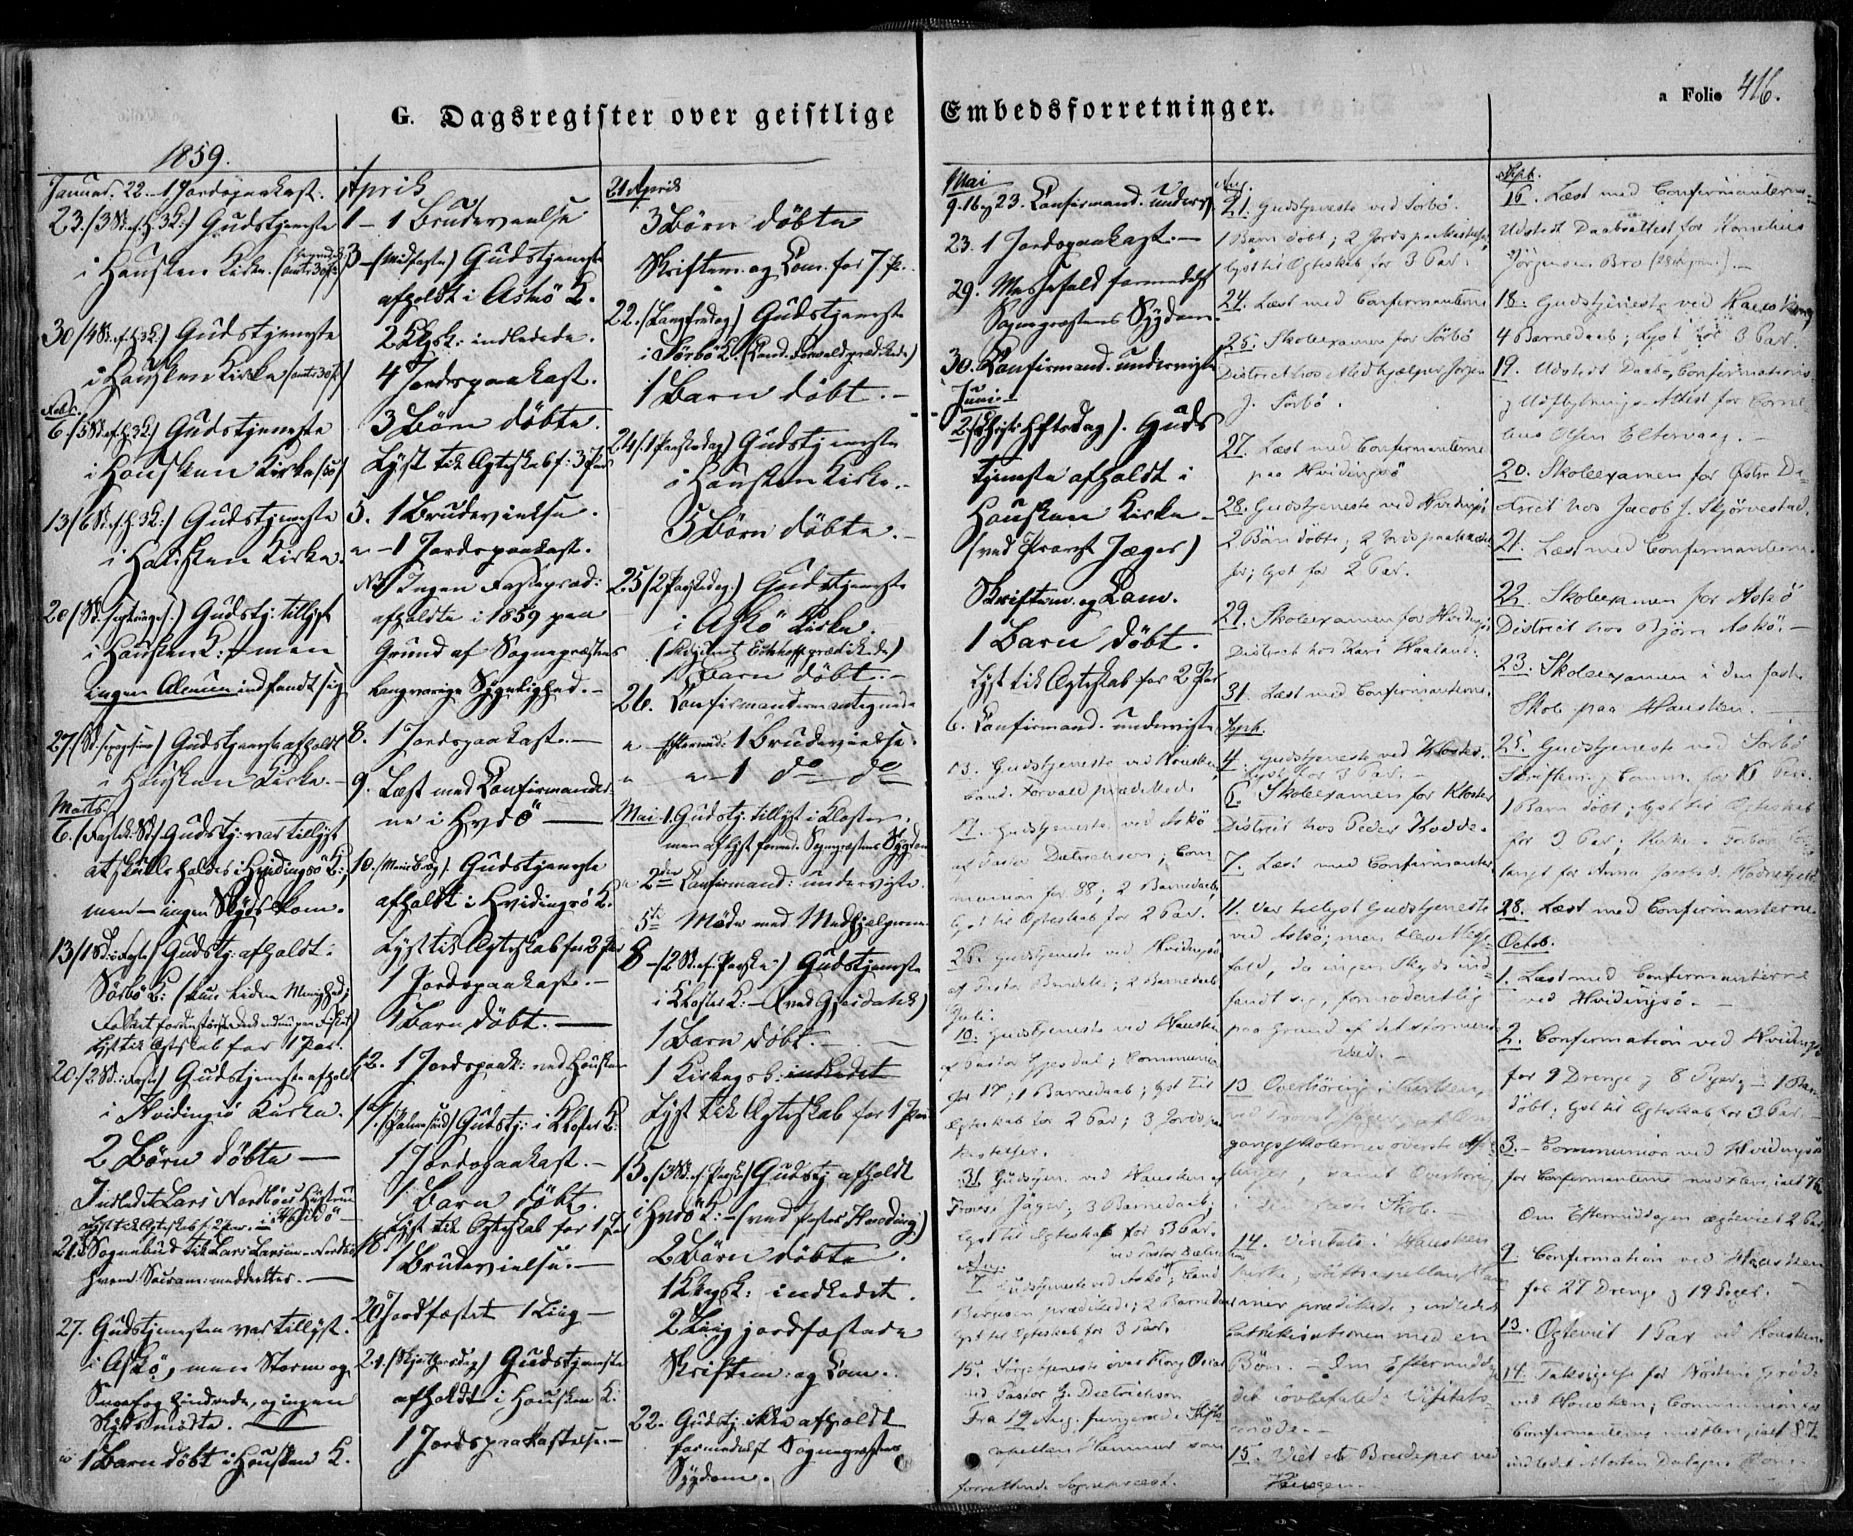 G. Dagsregister over geistlige Embedsforretninger.
a Folio 416.
1859.
Januar. 22. 1 Jordspaakast.
23. /3 S. e. H. 3 K:/ Gudstjeneste
i Hausken Kirke.
30 /4 S. e. H. 3 K:/ Gudstjeneste
i Hausken Kirke
Febr.
6. /5 S. e. H. 3 K:/ Gudstjeneste
i Hausken Kirke
13/6 S. e. H. 3 K:/ Gudstjeneste
i Hausken Kirke.
20/ Gudstj: tillyst
i Hausken K: men
ingen Almue indfandt sig
27. Gudstjeneste afholdt
i Hausken Kirke.
Marts.
6. Gudstj: var tillyst
at skulle holdes i Hvidingsö K:,
men ingen Skyds kom.
13/1 S. i Faste/ Gudstj: afholdt i
Sörbö K: (kun liden Menighed;
Lyst til Ægteskab for 1 Par.
20/2 S. i Faste/ Gudstjeneste afholdt
i Hvidingsö Kirke.
2 Börn döbte —
Indledet Lars Nordböes Hustru
21. Sognebud til Lars Larsen Nordbö
hvem Sacram: meddeeltes. —
27. Gudstjenesten var tillyst
i Askö, men Storm og
Sneefog hindrede, og ingen
Skyds mödte. —
1 Barn döbt i Hausken K.
April
1 – 1 Brudevielse
3 – (Midfaste) Gudstjeneste
afholdt i Askö K.
2 Ægtsk: indledede.
4 Jordspaakast.
3 Börn döbte.
Lyst til Ægteskab f: 3 Par
5. 1 Brudevielse.
" – 1 Jordspaakast.
NB Ingen Fastepræd:
afholdte i 1859 paa
Grund af Sognepræstens
langvarige Sygelighed. –
8. 1 Jordspaakast. —
9. Læst med Confirmander-
ne i Hvdö —
10. Gudstjeneste
afholdt i Hvidingsö K.
Lyst til Ægteskab for 2 Par
1 Jordspaakast. –
1 Barn döbt. —
12. 1 Jordspaak: ved Hausken
17. (Palmesönd) Gudstj: i Kloster K:
1 Jordspaakast. –
1 Barn döbt.
Lyst til Ægteskab for 1 Par
18. 1 Brudevielse. –
20 Jordfæstet 1 Liig –
21. (Skjærthorsdag) Gudstjeneste
afholdt i Hausken K:
1 Jordspaakastelse. –
21 April
3 Börn döbte
Skriftem. og Com. for 7 P.
22. (Langfredag) Gudstjeneste
i Sörbö K. (Cand. Forwald prædikede)
1 Barn döbt. –
24/1 Paaskedag) Gudstjeneste
i Hausken Kirke.
5 Börn döbte. –
25/2 Paaskedag.) Gudstjeneste
i Askö Kirke.
1 Barn döbt. –
26. Confirmanderne antegnede
" Eftermid: 1 Brudevielse.
" " – 1 do – do
Mai 1. Gudstj: tillyst i Kloster,
men aflyst formed. Sognepræstens Sygdom
2den Confirmand: underviste.
5te Möde med Medhjelperne
8 – (2 S. ef. Paaske) Gudstjeneste
i Kloster K: – (ved Gjesdahl)
1 Barn döbt. –
Lyst til Ægteskab for 1 Par
15. /3 S. ef. Paaske/ Gudstj: afholdt
i Hvdö K: –
2 Börn döbte.
1 Ægtsk: indledet.
2 Liig jordfæstede
Skriftem. og Com.
22. Gudstj: ikke afholdt
formedelst Sognepræstens
Sygdom.
Mai
9. 16 og 23. Confirmand. underv.
23. 1 Jordspaakast. —
29. Messefald formedelst
Sognepræstens Sygdom
30. Confirmand. underviste
Juni –
2/ (Christi Hftsdag). Guds
tjeneste afholdt i
Hausken Kirke –
(ved Provst Jæger)
Skriftem. og Com.
1 Barn döbt.
Lyst til Ægteskab for 2 Par
6. Confirmand. underviste
13. Gudstjeneste ved Hausken,
Cand. Forvald prædikede
Gudstjeneste ved Askö
af Pastor Dietrichson; Com-
munion for 88; 2 Barnedaab,
Lyst til Ægteskab for 2 Par.
26. Gudstjeneste ved Hvidingsö
2 Barnedaab
Juli.
10. Gudstjeneste ved Hausken
af Pastor Gjesdal; Communion
for 17; 1 Barnedaab; Lyst til
Ægteskab for 2 Par; 3 Jordspaa-
kastelser.
31. Gudstjen. ved Hausken af
Provst Jäger; 3 Barnedaab;
Lyst til Ægteskab for 3 Par.
Aug.
7. Gudstjeneste ved Askö, Cand
prædikede; 2 Barnedaab
Lyst til Ægteskab for 3 Par.
15. Sörgetjeneste over Kong Oscar
ved Pastor G. Dietrichson
Fra 19 Aug. fungerede Stifts-
capellan Hammer som
forrettende Sognepræst.
Aug.
21. Gudstjeneste ved Sörbö.
1 Barn döbt; 2 Jordspaakastelser,
lyst til Ægteskab for 3 Par.
24. Læst med Confirmanterne
25. Skoleexamen for Sörbö
District hos Medhjælper Jörgen
J. Sörbö.
27. Læst med Confirmanterne
paa Hvidingsö
28. Gudstjeneste ved Hvidingsö
2 Börn döbte; 2 Jordspaakastel-
ser; lyst for 2 Par.
29. Skoleexamen for Hvidingsö
District hos Kari Haaland.
31. Læst med Confirmanterne.
Septb.
4. Gudstjeneste ved Kloster.
Lyst for 3 Par. –
6. Skoleexamen for Kloster
District hos Peder Hodde.
7. Læst med Confirmanterne
11. Var tillyst Gudstjeneste
ved Askö; men blev Messe-
fald, da ingen Skyds ind-
fandt sig, formodentlig
paa Grund af det stormende
Veir. –
13. Overhöring i Hausken,
ved Provst Jäger, af Om-
gangsskolernes överste Af-
delinger, samt Overhöring
i den faste Skole. –
14. Visitats i Hausken
Kirke, Stiftscapellan Ham-
mer prædikede, indledet
Cathekisationen med en
Bön. – Om Eftermiddag
det lovbefalede Visitats-
möde. –
15. Viet et Brudepar ved
Hausken. –
Septb.
16. Læst med Confirmanterne.
Udstedt Daabsattest for Kornelius
Jörgensen Bro
18. Gudstjeneste ved Hausken
4 Barnedaab; Lyst for 3 Par.
19. Udstedt Daabs, Confirmations
og Udflytnings-Attest for Corne-
lius Olsen Eltervaag. –
20. Skoleexamen for Östre Di-
strict hos Jacob J. Skjörvestad.
21. Læst med Confirmanterne.
22. Skoleexamen for Askö
District hos Björn Askö. –
23. Skoleexamen i den faste
Skole paa Hausken. —
25. Gudstjeneste ved Sörbö
1 Barn döbt; lyst til Ægteskab
for 3 Par;
28. Læst med Confirmanterne
Octob.
1. Læst med Confirmanterne
ved Hvidingsö. –
2. Confirmation ved Hvidingsö
for 9 Drenge og 8 Piger – 1 Barn
döbt; lyst til Ægteskab for 3 Par. –
3. – Communion ved Hvidingsö
for Confirmanterne med Flere, ialt 76
Om Eftermiddagen ægteviet 2 Par
9. Confirmation ved Hausken
for 27 Drenge og 19 Piger.
13. Ægteviet 1 Par ved Hausken
14. Taksigelse for Höstens Gröde
ved Hausken; Communion for
Confirmanterne med Flere, ialt 87.